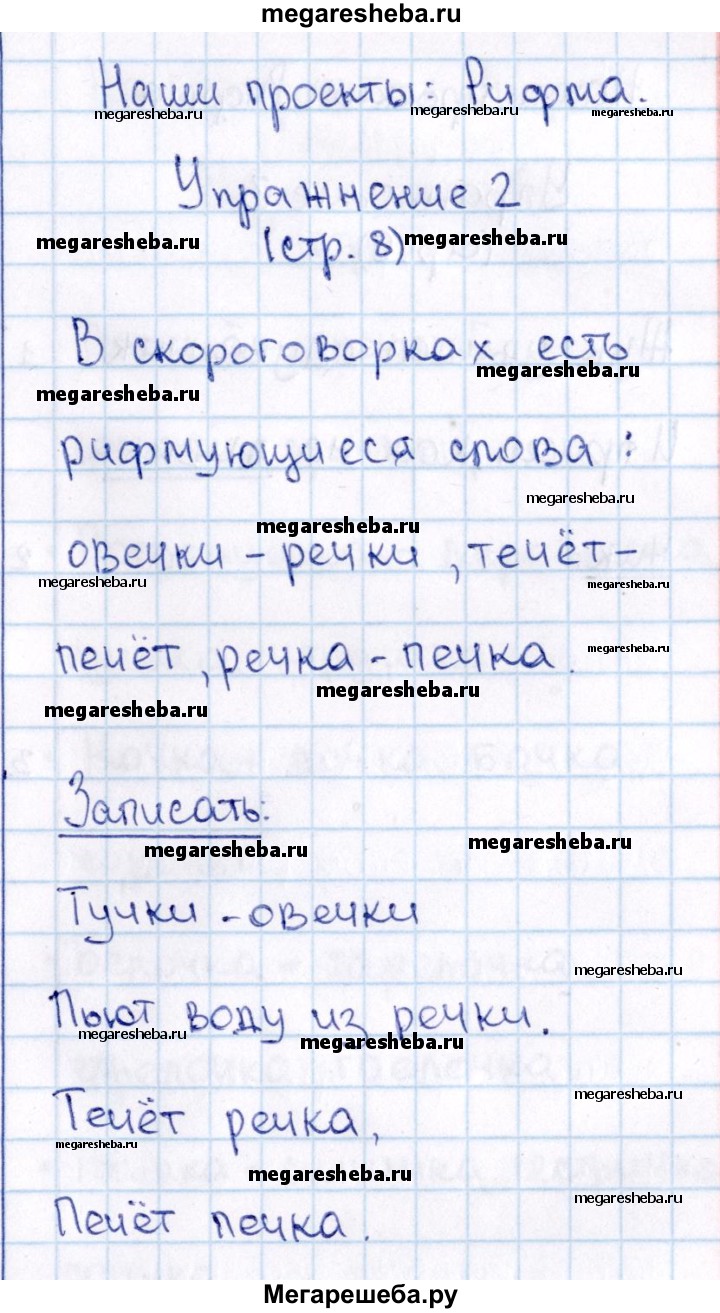 megaresheba.ru
Наши проекты: Рифма.
megaresheba.ru megaresheba.ru megaresheba.ru
Упражнение 2
megaresheba.ru (стр. 8) megaresheba.ru
В скороговорках есть
megaresheba.ru
megaresheba.ru
рифмующиеся слова:
megaresheba.ru
megaresheba.ru
овечки - речки, течёт-
megaresheba.ru megaresheba.ru
печёт, речка - печка.
megaresheba.ru
megaresheba.ru
megaresheba.ru
Записать:
megaresheba.ru megaresheba.ru
Тучки - овечки
megaresheba.ru
Пьют воду из речки.
megaresheba.ru megaresheba.ru
megaresheba.ru
Течёт речка,
megaresheba.ru
megaresheba.ru
megaresheba.ru
Печёт печка.
Мегарешеба.ру